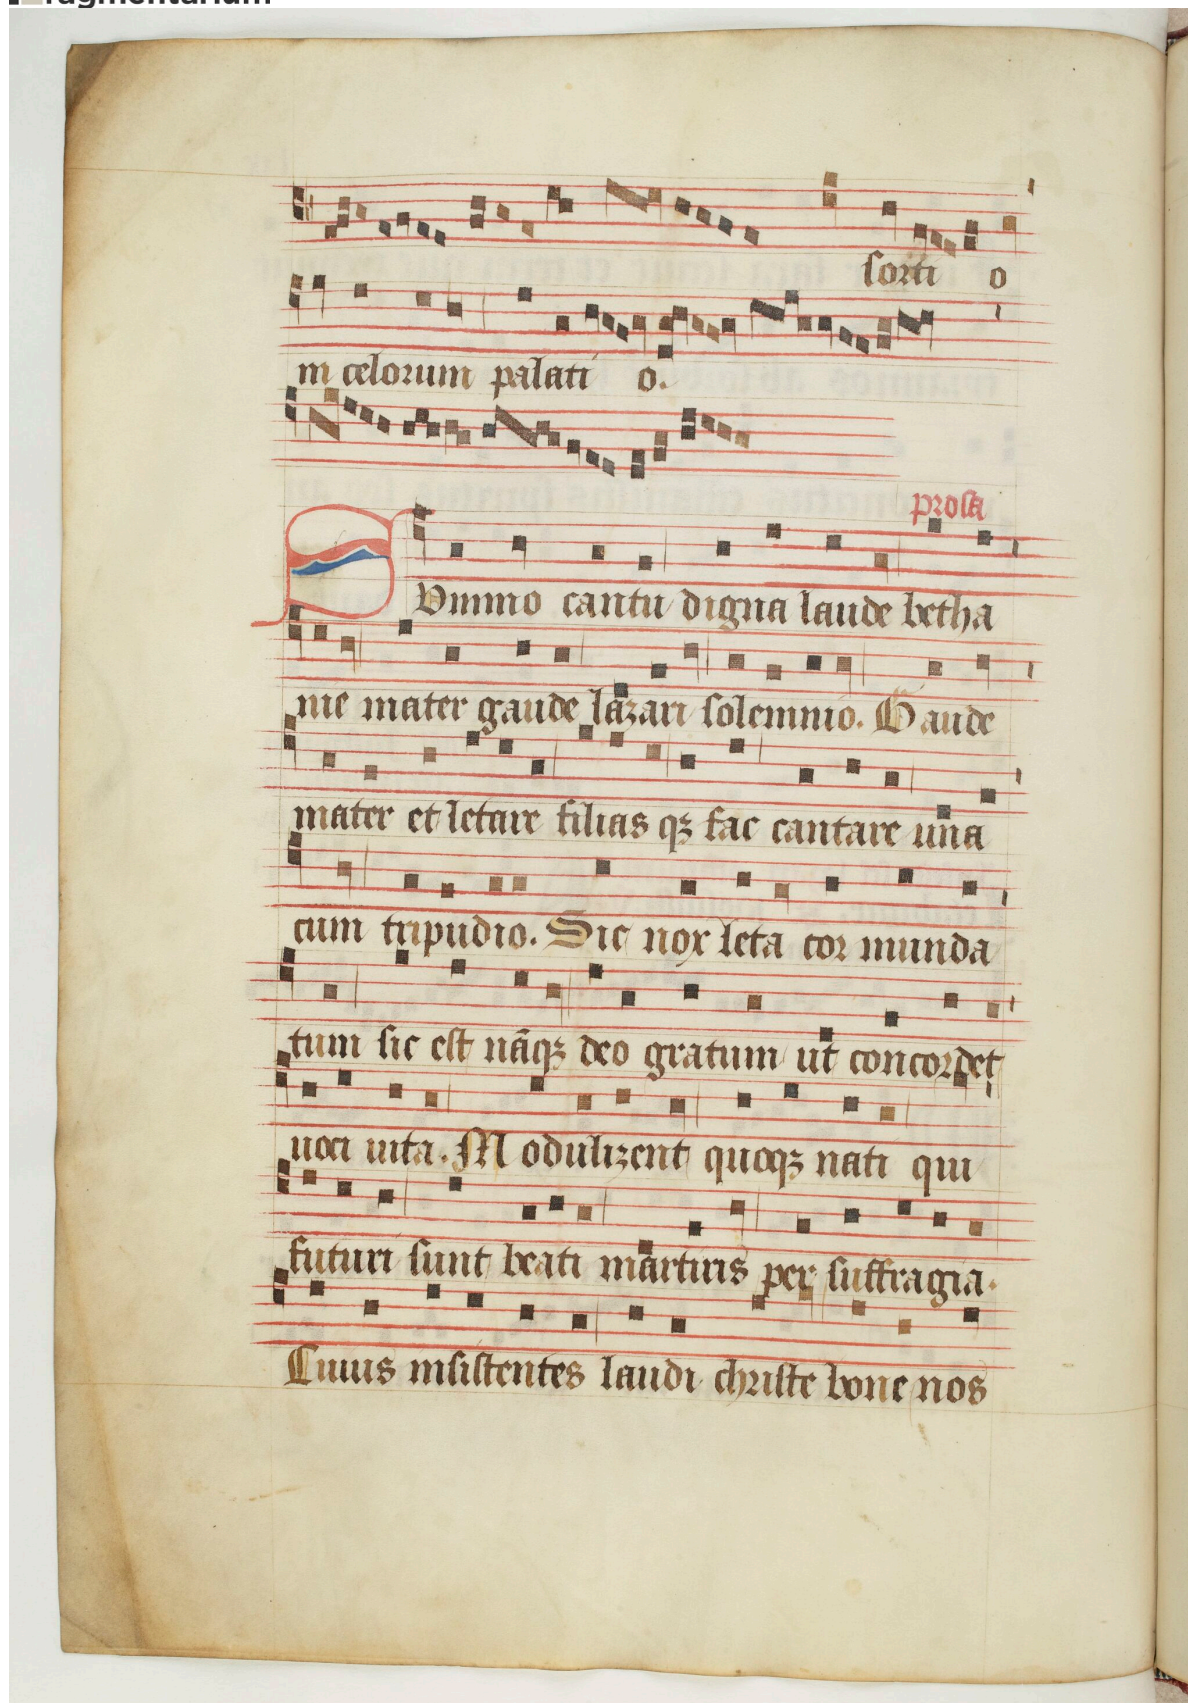 ragmentarium
sorti o
in celorum palati o.
prosa
Summo cantu digna laude betha
nie mater gaude lazari solemnio. Gaude
mater et letare filias qꝫ fac cantare una
cum tripudio. Sic nox leta cor munda
tum sic est nāqꝫ deo gratum ut concordet
uoci uita. Modulizent quoqꝫ nati qui
futuri sunt beati martiris per suffragia.
Cuius insistentes laudi christe bone nos